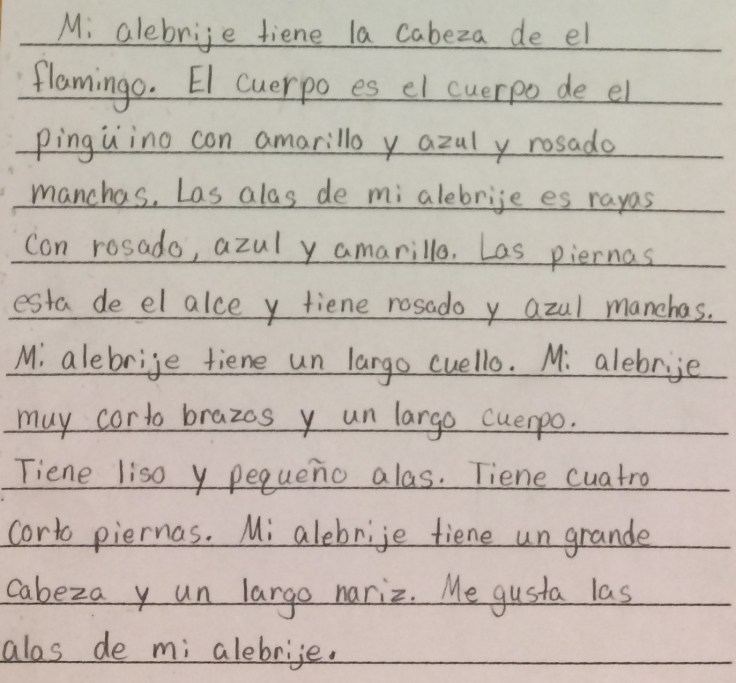 Mi alebrije tiene la cabeza de el
flamingo. El cuerpo es el cuerpo de el
pingüino con amarillo y azul y rosado
manchas. Las alas de mi alebrije es rayas
con rosado, azul y amarillo. Las piernas
esta de el alce y tiene rosado y azul manchas.
Mi alebrije tiene un largo cuello. Mi alebrije
muy corto brazos y un largo cuerpo.
Tiene liso y pequeño alas. Tiene cuatro
corto piernas. Mi alebrije tiene un grande
cabeza y un largo nariz. Me gusta las
alas de mi alebrije.